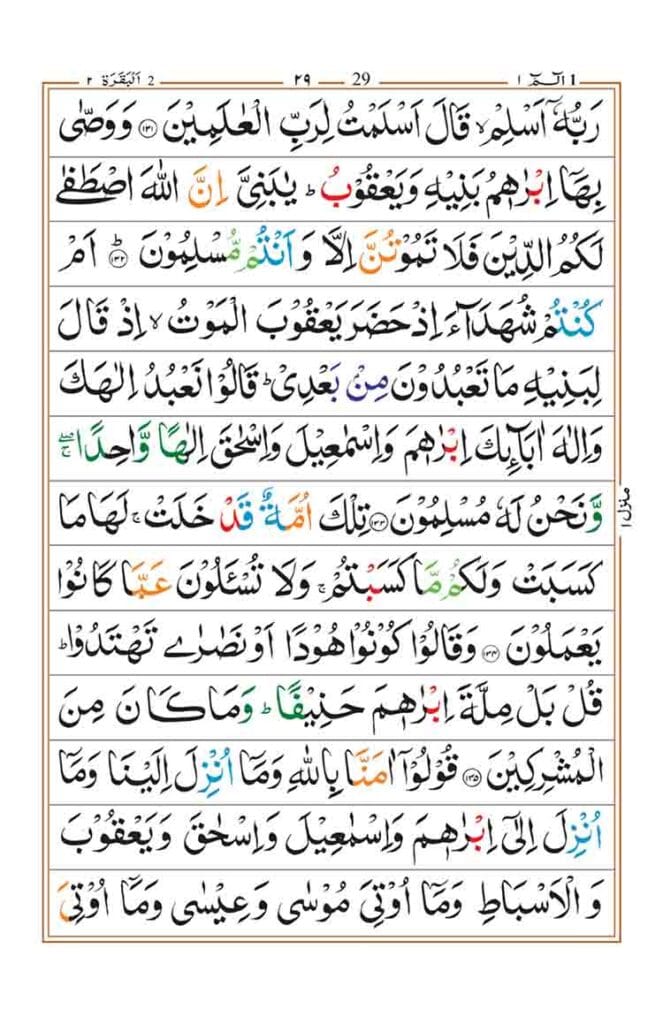 1 الٓمّٓ ١ 29 ٢٩ 2 اَلْبَقَرَة ٢
رَبُّهٗۤ اَسْلِمْ ۙ قَالَ اَسْلَمْتُ لِرَبِّ الْعٰلَمِیْنَ ﴿۱۳۱﴾ وَوَصّٰی
بِهَاۤ اِبْرٰهٖمُ بَنِیْهِ وَیَعْقُوْبُ ؕ یٰبَنِیَّ اِنَّ اللّٰهَ اصْطَفٰی
لَكُمُ الدِّیْنَ فَلَا تَمُوْتُنَّ اِلَّا وَاَنْتُمْ مُّسْلِمُوْنَ ﴿۱۳۲﴾ؕ اَمْ
كُنْتُمْ شُهَدَآءَ اِذْ حَضَرَ یَعْقُوْبَ الْمَوْتُ ۙ اِذْ قَالَ
لِبَنِیْهِ مَا تَعْبُدُوْنَ مِنْ بَعْدِیْ ؕ قَالُوْا نَعْبُدُ اِلٰهَكَ
وَاِلٰهَ اٰبَآئِكَ اِبْرٰهٖمَ وَاِسْمٰعِیْلَ وَاِسْحٰقَ اِلٰهًا وَّاحِدًا ۚۖ
وَّنَحْنُ لَهٗ مُسْلِمُوْنَ ﴿۱۳۳﴾ تِلْكَ اُمَّةٌ قَدْ خَلَتْ ۚ لَهَا مَا
كَسَبَتْ وَلَكُمْ مَّا كَسَبْتُمْ ۚ وَلَا تُسْـَٔلُوْنَ عَمَّا كَانُوْا
یَعْمَلُوْنَ ﴿۱۳۴﴾ وَقَالُوْا كُوْنُوْا هُوْدًا اَوْ نَصٰرٰی تَهْتَدُوْا ؕ
قُلْ بَلْ مِلَّةَ اِبْرٰهٖمَ حَنِیْفًا ؕ وَمَا كَانَ مِنَ
الْمُشْرِكِیْنَ ﴿۱۳۵﴾ قُوْلُوْۤا اٰمَنَّا بِاللّٰهِ وَمَاۤ اُنْزِلَ اِلَیْنَا وَمَاۤ
اُنْزِلَ اِلٰۤی اِبْرٰهٖمَ وَاِسْمٰعِیْلَ وَاِسْحٰقَ وَیَعْقُوْبَ
وَالْاَسْبَاطِ وَمَاۤ اُوْتِیَ مُوْسٰی وَعِیْسٰی وَمَاۤ اُوْتِیَ
منزل ١